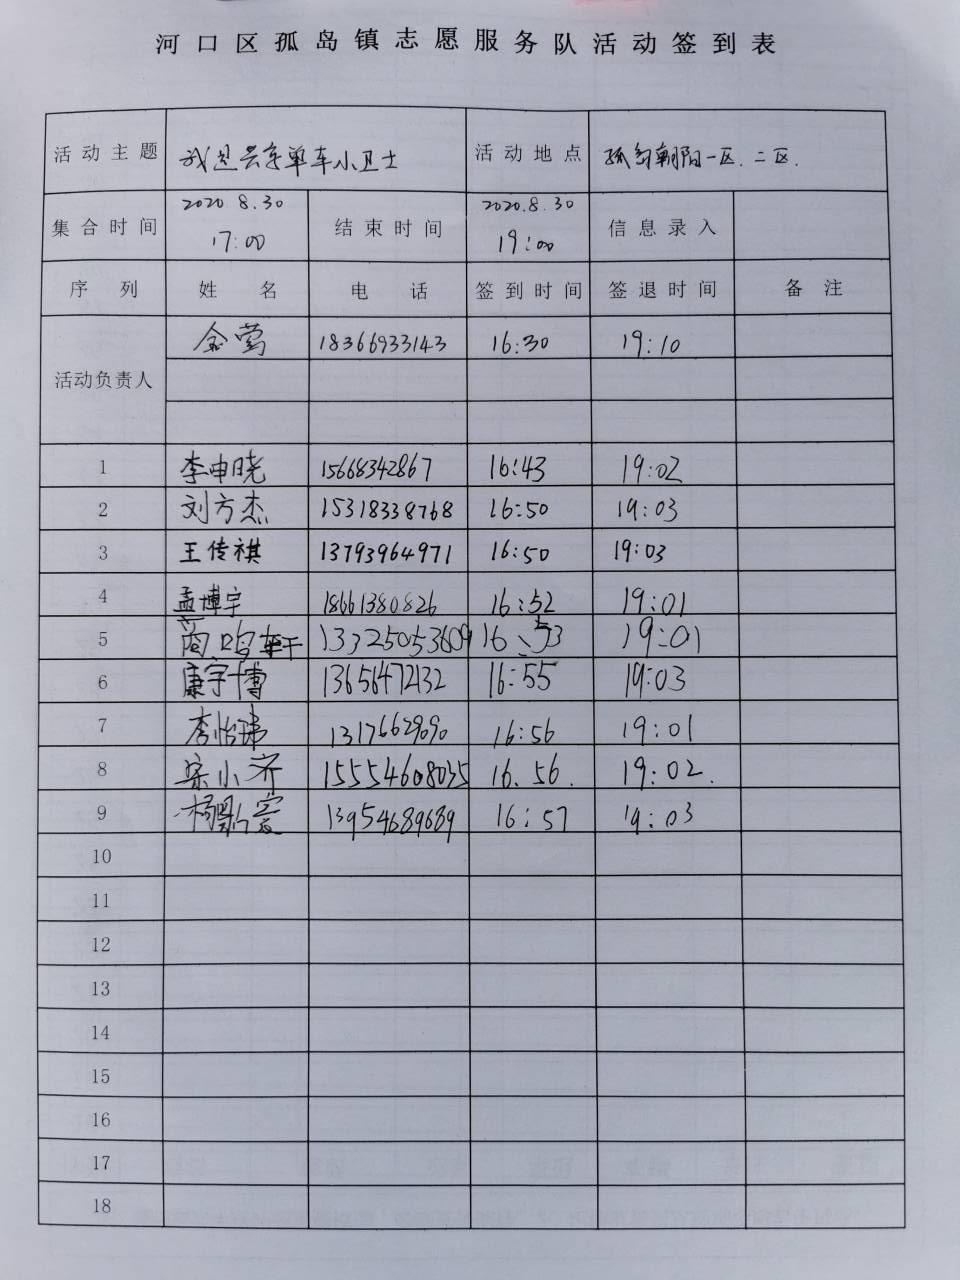 河口区孤岛镇志愿服务队活动签到表
活动主题 我是共享单车小卫士 活动地点 孤岛朝阳一区.二区.
集合时间 2020.8.30 17:00 结束时间 2020.8.30 19:00 信息录入
序列 姓名 电话 签到时间 签退时间 备注
活动负责人 金莺 18366933143 16:30 19:10
1 李申晓 15668342867 16:43 19:02
2 刘方杰 15318338768 16:50 19:03
3 王传祺 13793964971 16:50 19:03
4 孟博宇 18661380826 16:52 19:01
5 鸣轩 13325053609 16:53 19:01
6 康宇博 13656472132 16:55 19:03
7 李怡玮 13176629090 16:56 19:01
8 宋小齐 15554608035 16.56. 19:02.
9 杨 13954689689 16:57 19:03
10
11
12
13
14
15
16
17
18